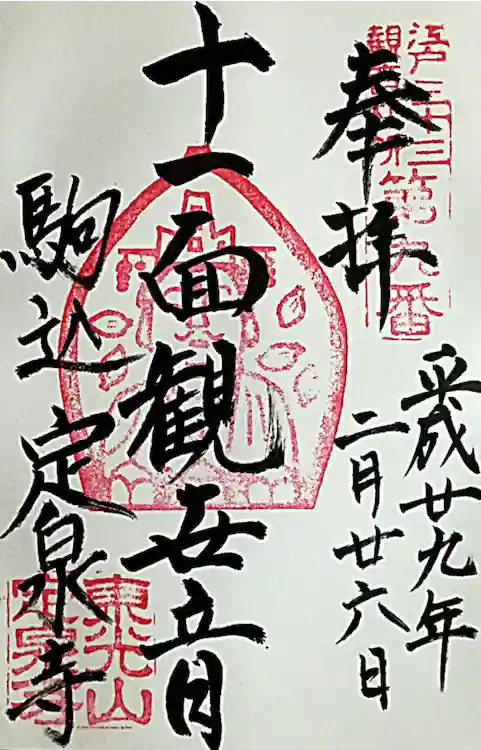 奉拝
江戸三十三
観音札所
第九番
平成廿九年
二月廿六日
十一面観世音
駒込定泉寺
東光山
定泉寺